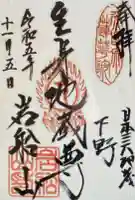 奉拝
下野
日本三大地蔵
生身地蔵尊
岩船山
令和五年
十一月五日